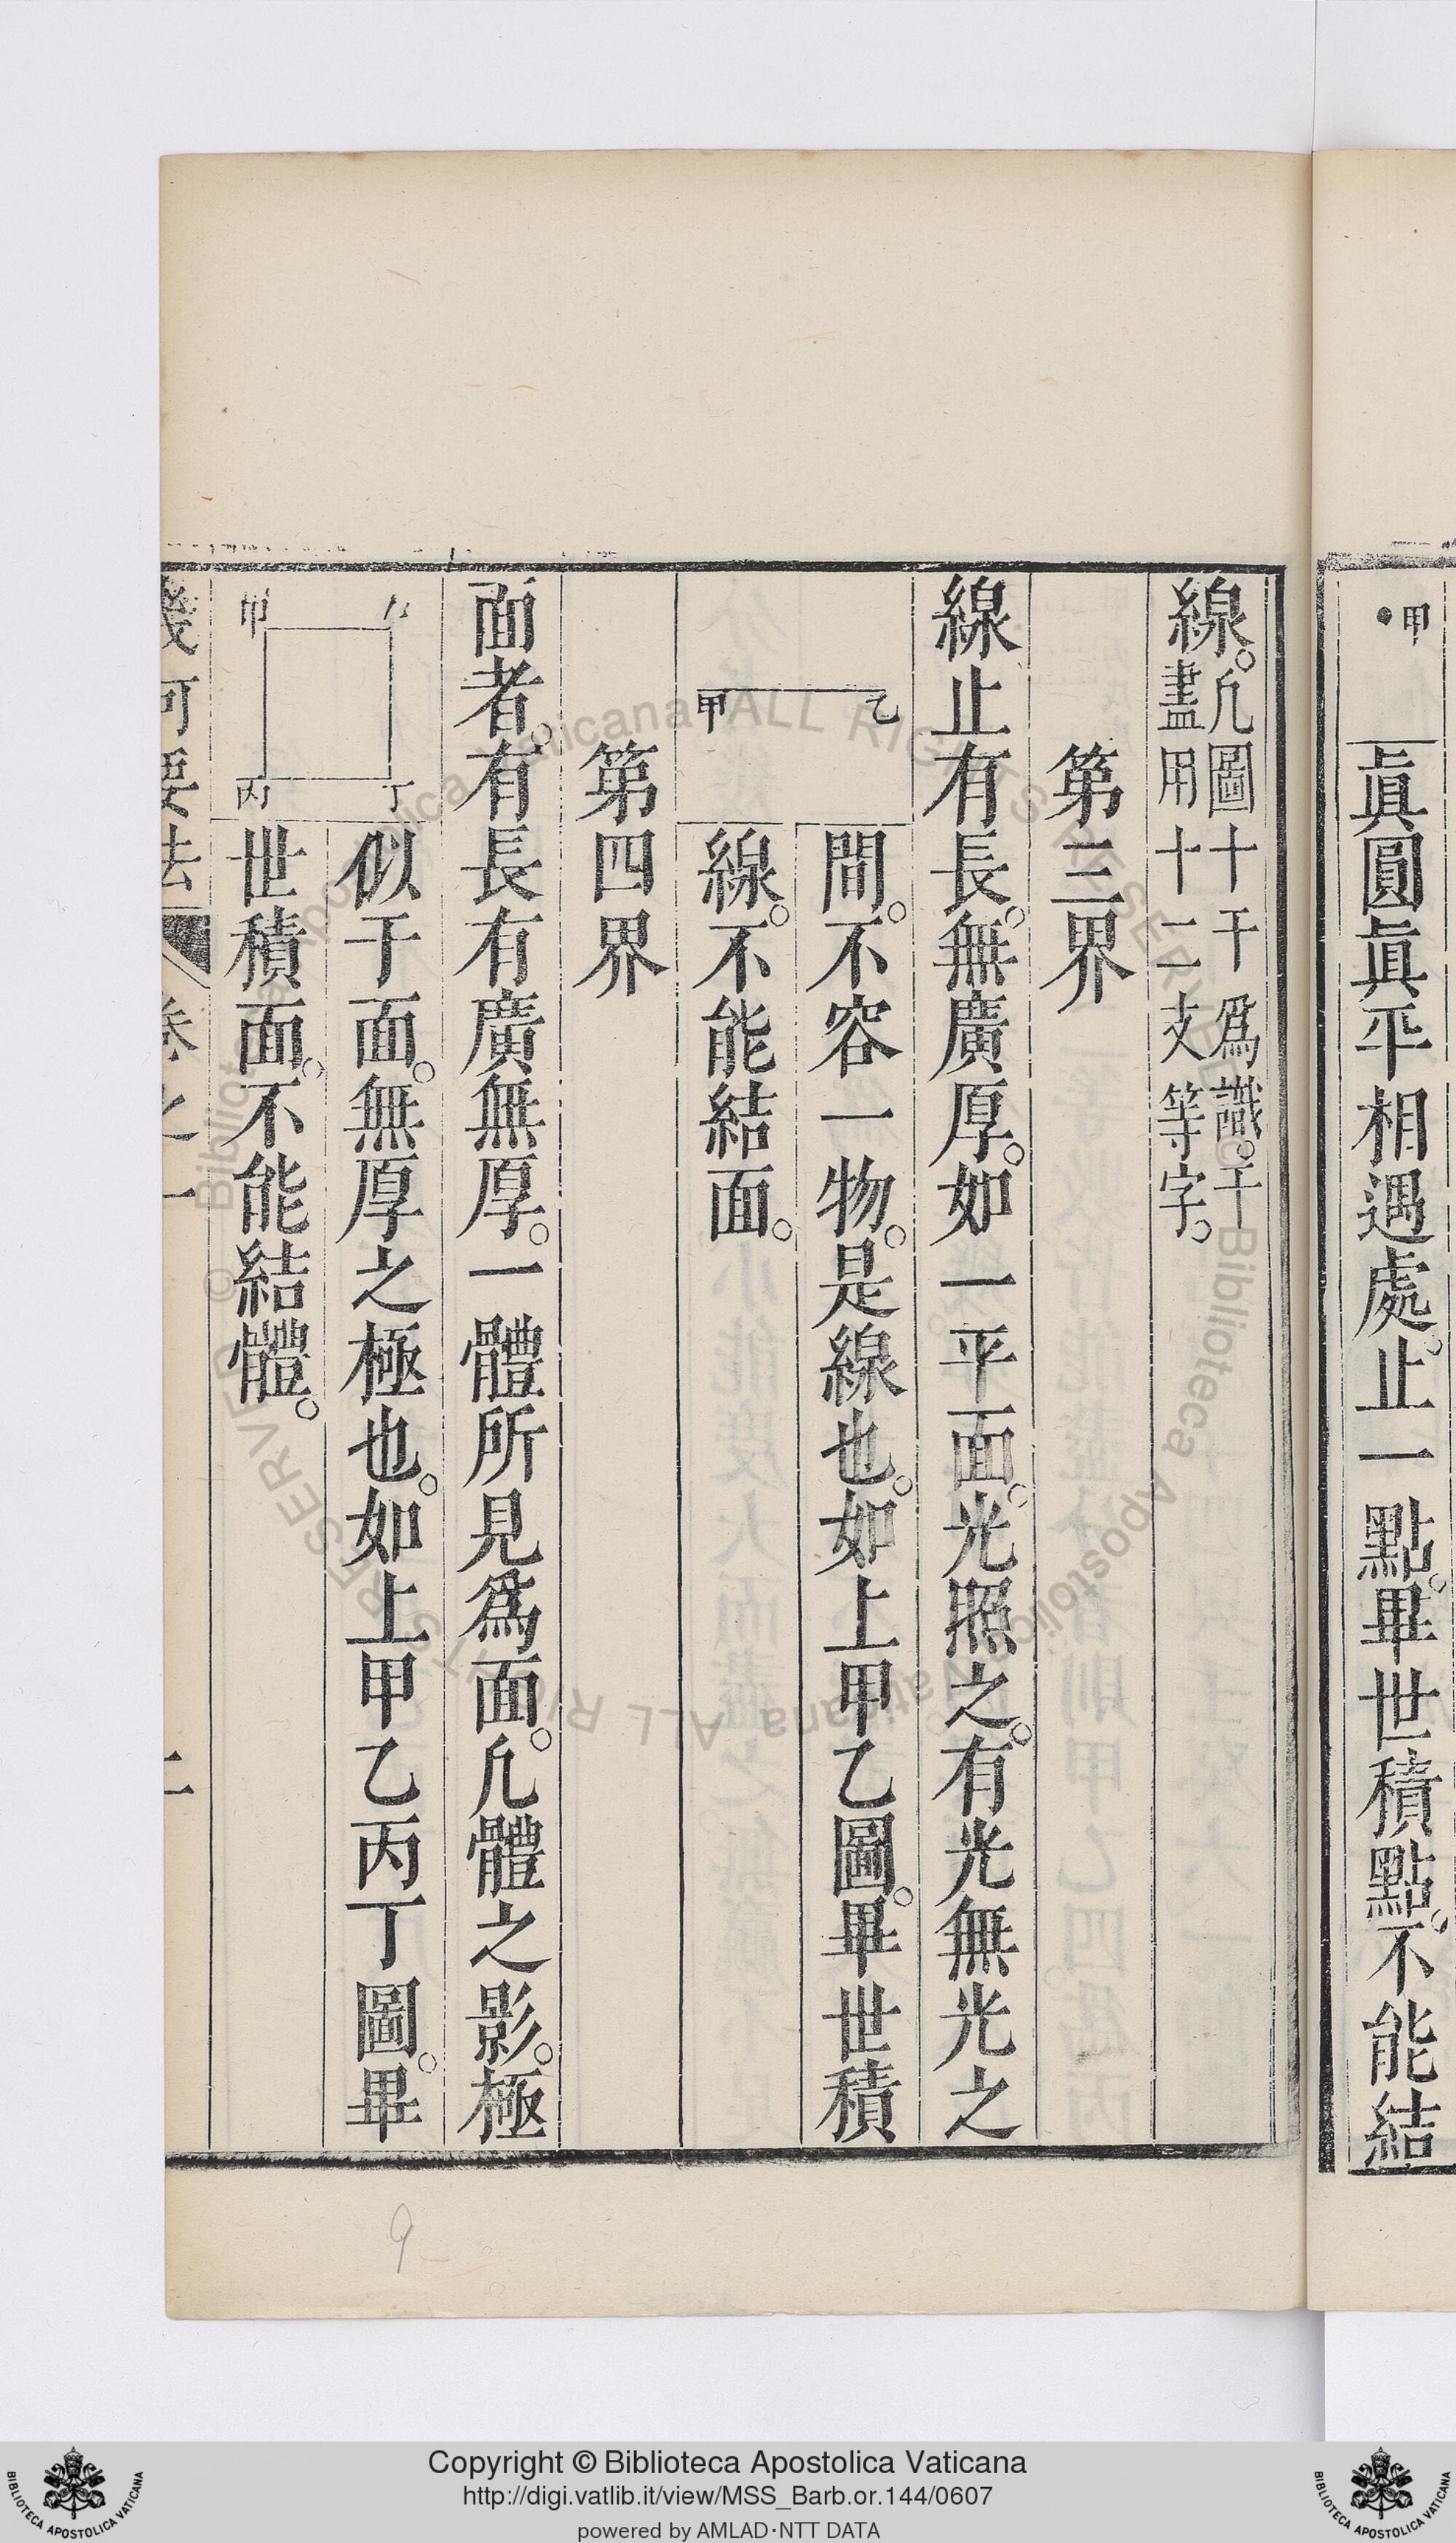 甲
眞圓眞平相遇處。止一點。畢世積點。不能結
線。凡圖十干爲識。干
盡用十二支等字。
第三界
線止有長。無廣厚。如一平面。光照之。有光無光之
間。不容一物。是線也。如上甲乙圖。畢世積
線。不能結面。
甲 乙
第四界
面者。有長有廣無厚。一體所見爲面。凡體之影。極
似于面。無厚之極也。如上甲乙丙丁圖。畢
世積面。不能結體。
甲 乙
丙 丁
幾何要法 卷之一 二
Copyright © Biblioteca Apostolica Vaticana
http://digi.vatlib.it/view/MSS_Barb.or.144/0607
powered by AMLAD·NTT DATA
BIBLIOTECA APOSTOLICA VATICANA
BIBLIOTECA APOSTOLICA VATICANA
© Biblioteca Apostolica Vaticana ALL RIGHTS RESERVED
© Biblioteca Apostolica Vaticana ALL RIGHTS RESERVED
9